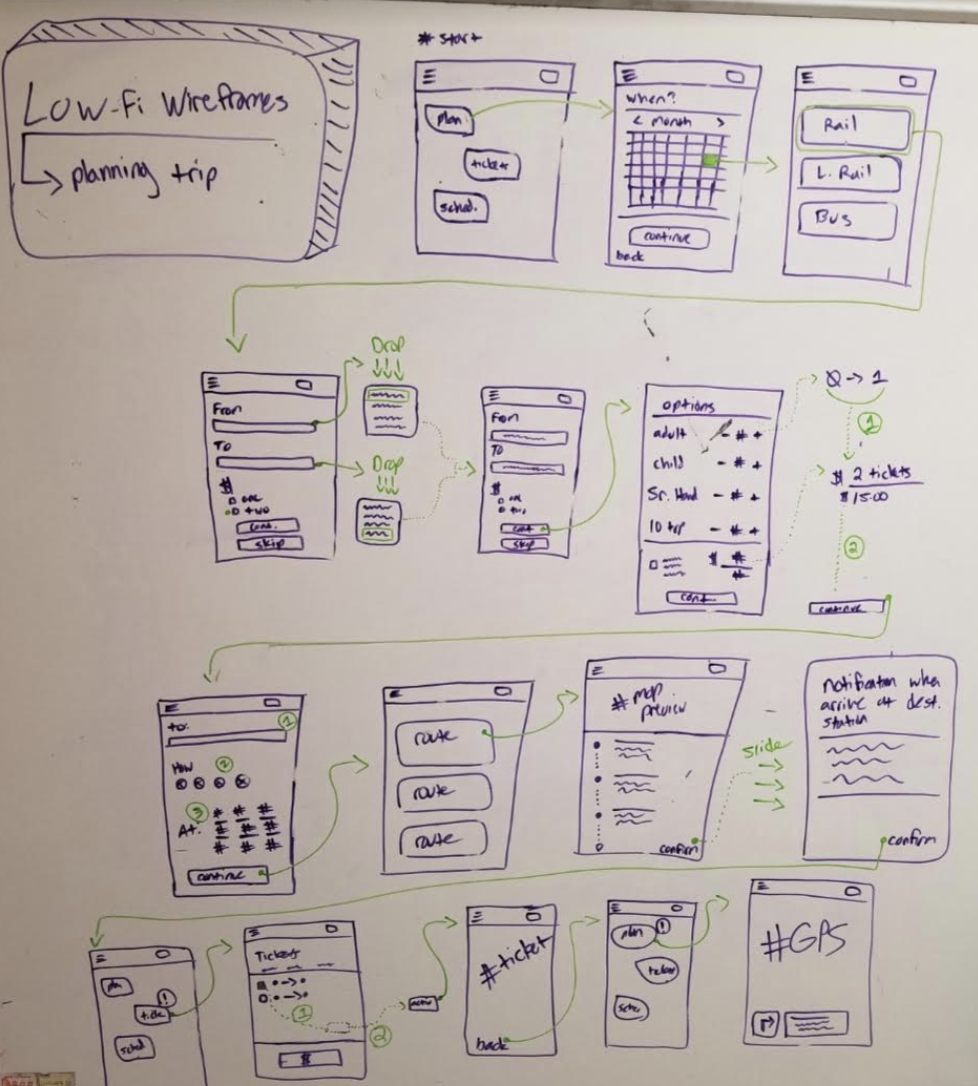 Low-Fi Wireframes
planning trip
# start
plan
tickets
sched.
when?
< month >
continue
back
Rail
L. Rail
Bus
Drop
From
To
$
one
two
cont.
skip
Drop
From
To
$
one
two
cont
skip
options
adult - # +
child - # +
Sr. Hand - # +
10 trp - # +
$ #
#
cont.
0 → 1
1
$ 2 tickets
$15.00
2
continue
to: 1
How 2
3
At: # # #
# # #
# # #
continue
route
route
route
# map
preview
confirm
slide
notification when
arrive at dest.
station
confirm
pln
!
tick
sched
Tickets
1
2
$
#ticket
back
plan !
ticket
sche
#GPS